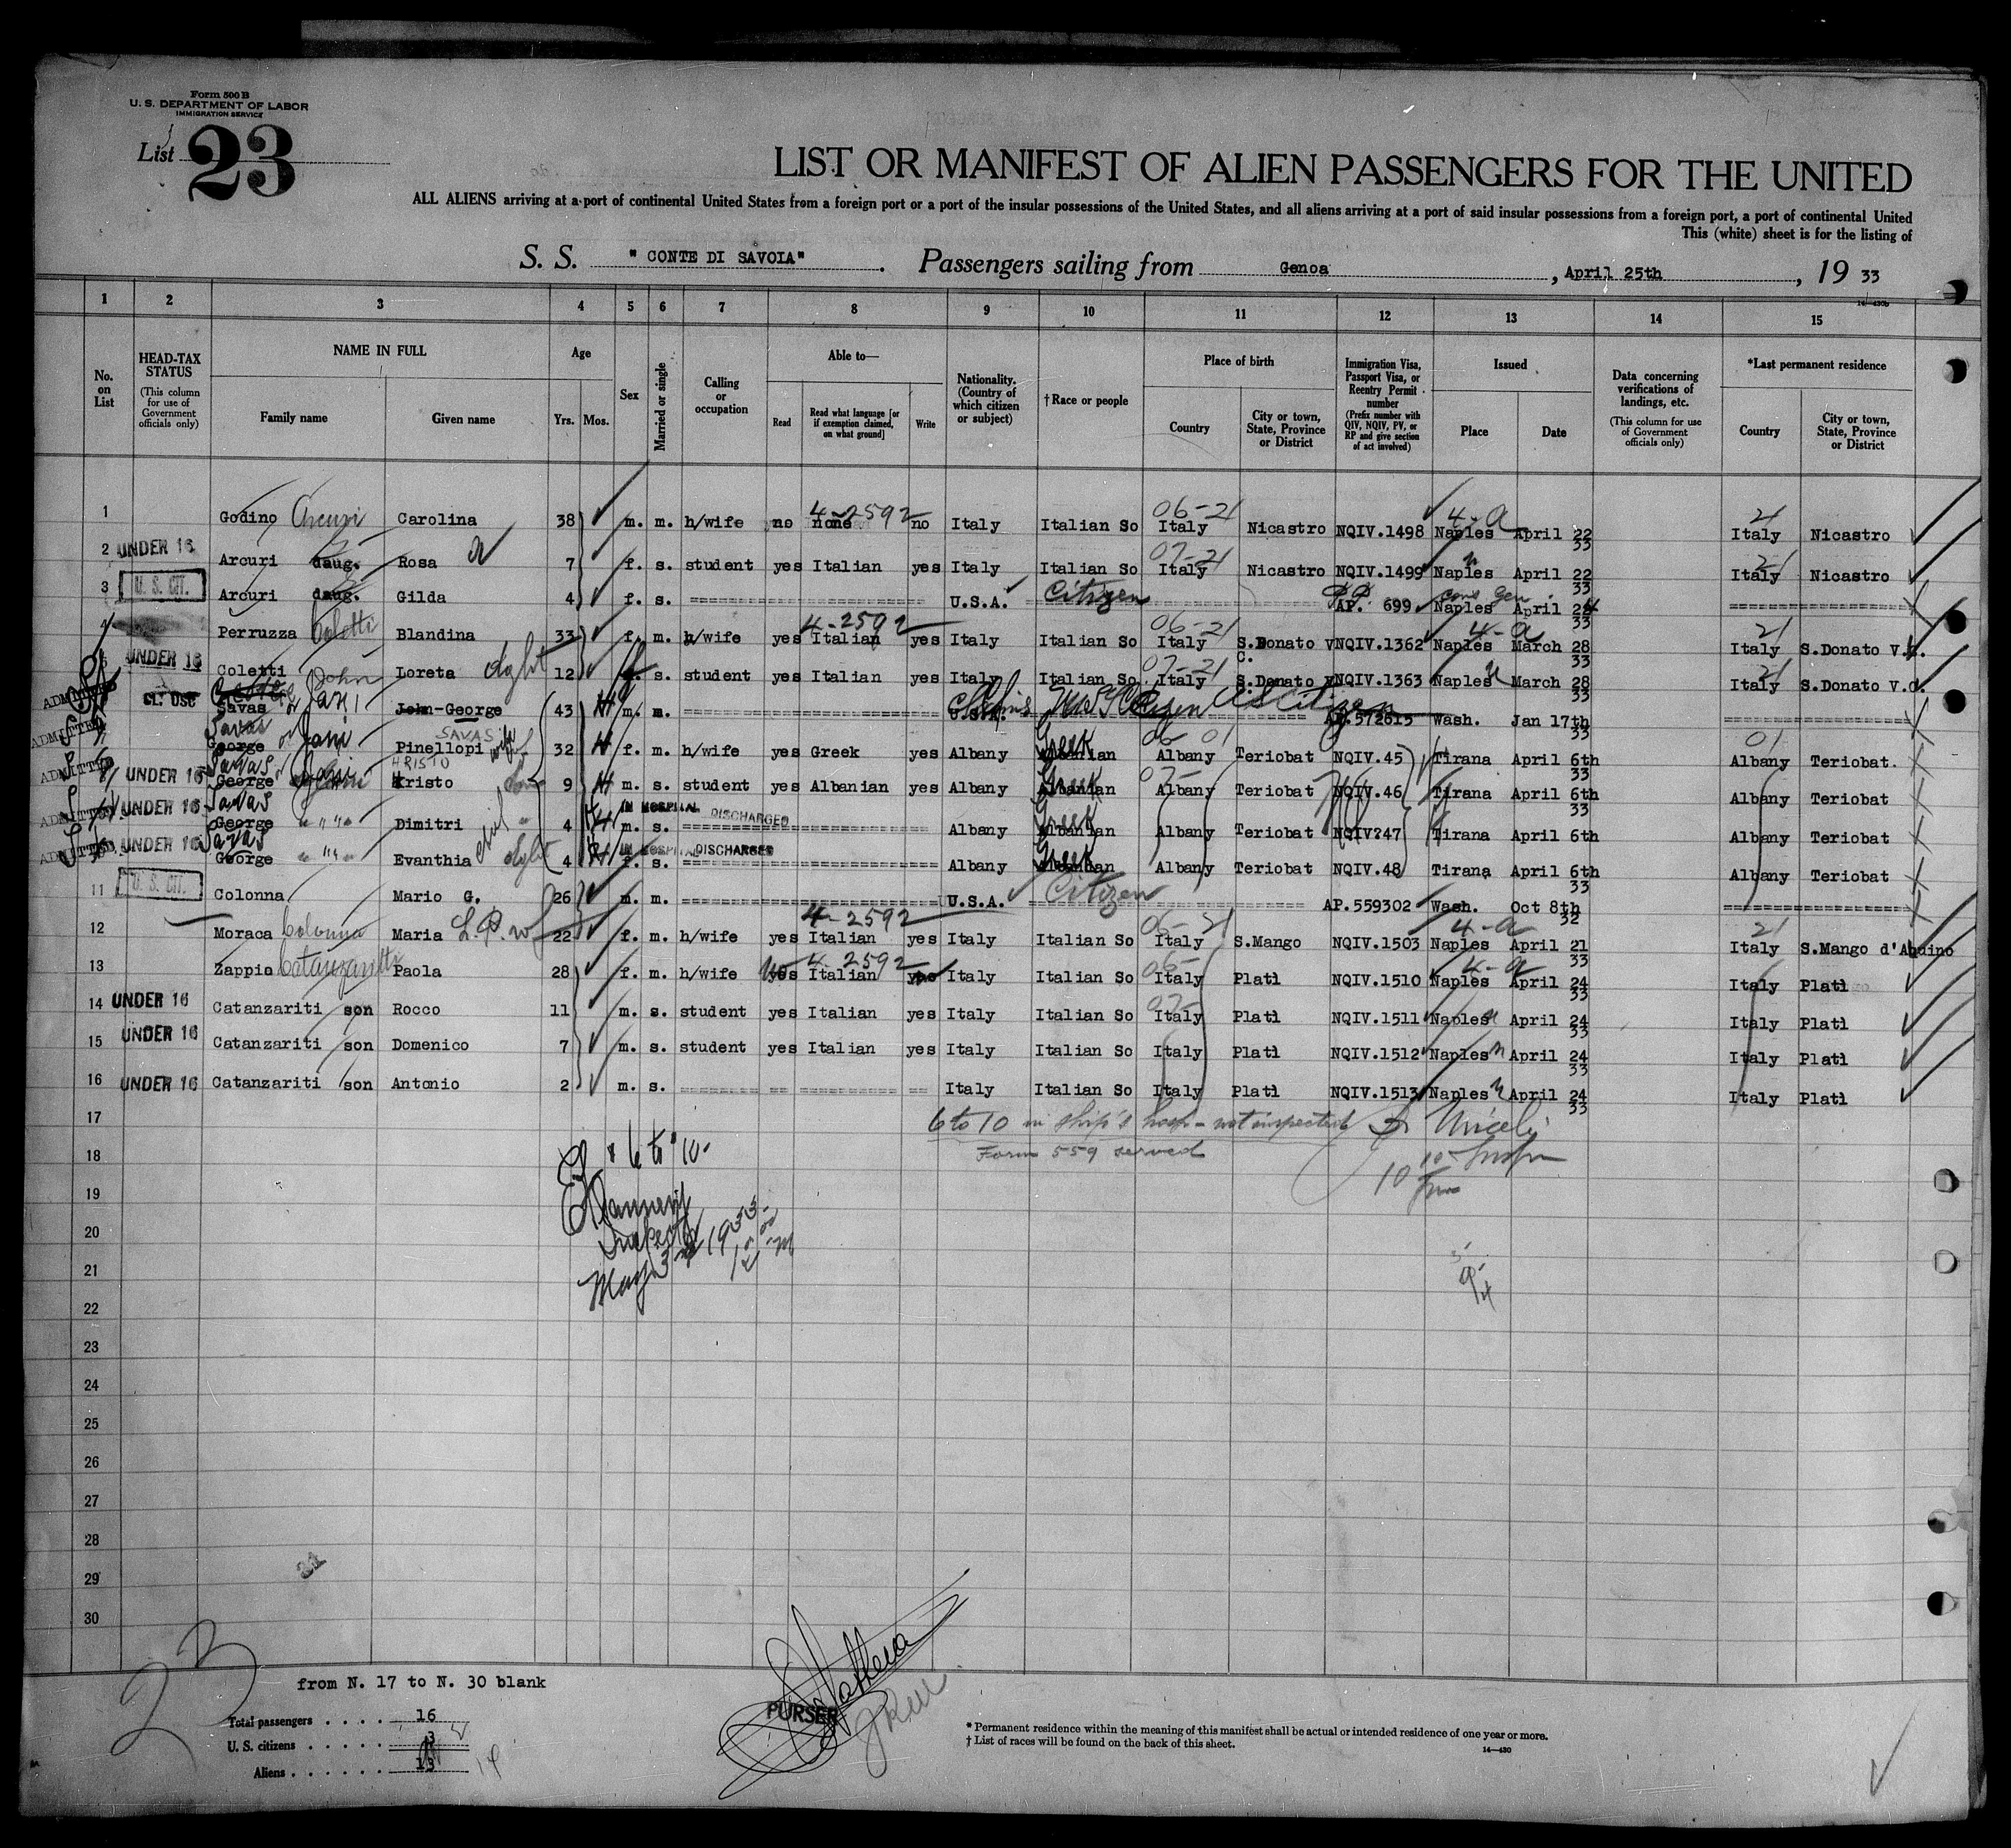 Form 500 B
U. S. DEPARTMENT OF LABOR
IMMIGRATION SERVICE
List 23
LIST OR MANIFEST OF ALIEN PASSENGERS FOR THE UNITED
ALL ALIENS arriving at a port of continental United States from a foreign port or a port of the insular possessions of the United States, and all aliens arriving at a port of said insular possessions from a foreign port, a port of continental United
This (white) sheet is for the listing of
S. S. "CONTE DI SAVOIA". Passengers sailing from Genoa, April 25th, 19 33
14—430b
1 2 3 4 5 6 7 8 9 10 11 12 13 14 15
No. on List
HEAD-TAX STATUS (This column for use of Government officials only)
NAME IN FULL Family name Given name
Age Yrs. Mos.
Sex
Married or single
Calling or occupation
Able to— Read Read what language [or if exemption claimed, on what ground] Write
Nationality. (Country of which citizen or subject)
†Race or people
Place of birth Country City or town, State, Province or District
Immigration Visa, Passport Visa, or Reentry Permit number (Prefix number with QIV, NQIV, PV, or RP and give section of act involved)
Issued Place Date
Data concerning verifications of landings, etc. (This column for use of Government officials only)
*Last permanent residence Country City or town, State, Province or District
4-2592 06-21 4-a 21
1 Godino Arcuri Carolina 38 m. m. h/wife no none no Italy Italian So Italy Nicastro NQIV.1498 Naples April 22 33 Italy Nicastro
07-21 21
2 UNDER 16 Arcuri daug. Rosa 7 f. s. student yes Italian yes Italy Italian So Italy Nicastro NQIV.1499 Naples April 22 33 Italy Nicastro
3 U. S. CIT. Arcuri daug. Gilda 4 f. s. U.S.A. Citizen AP. 699 Naples April 22 33
4-2592 06-21 4-a 21
4 Perruzza Coletti Blandina 33 f. m. h/wife yes Italian yes Italy Italian So Italy S.Donato V.C. NQIV.1362 Naples March 28 33 Italy S.Donato V.C.
07-21 21
5 UNDER 16 Coletti Loreta dght 12 f. s. student yes Italian yes Italy Italian So Italy S.Donato V NQIV.1363 Naples March 28 33 Italy S.Donato V.C.
ADMITTED Savas or Jani John-George 43 m. m. U.S.A. US Citizen AP.572613 Wash. Jan 17th 33
06 01 01
ADMITTED Savas George or Jani Pinellopi SAVAS wife 32 f. m. h/wife yes Greek yes Albany Greek Albanian Albany Teriobat NQIV.45 Tirana April 6th 33 Albany Teriobat.
ADMITTED UNDER 16 Savas George Kristo HRISTO 9 m. s. student yes Albanian yes Albany Greek Albanian Albany Teriobat NQIV.46 Tirana April 6th 33 Albany Teriobat
IN HOSPITAL DISCHARGED
ADMITTED UNDER 16 Savas George Dimitri 4 m. s. Albany Greek Albanian Albany Teriobat NQIV.47 Tirana April 6th Albany Teriobat
IN HOSPITAL DISCHARGED
ADMITTED UNDER 16 Savas George Evanthia dght 4 f. s. Albany Greek Albanian Albany Teriobat NQIV.48 Tirana April 6th 33 Albany Teriobat
11 U. S. CIT. Colonna Mario G. 26 m. m. U.S.A. Citizen AP.559302 Wash. Oct 8th 32
4-2592 06-21 4-a 21
12 Moraca Colonna Maria 22 f. m. h/wife yes Italian yes Italy Italian So Italy S.Mango NQIV.1503 Naples April 21 33 Italy S.Mango d'Aquino
4-2592 06- 4-a
13 Zappia Catanzariti Paola 28 f. m. h/wife yes Italian no Italy Italian So Italy Platì NQIV.1510 Naples April 24 33 Italy Platì
07-
14 UNDER 16 Catanzariti son Rocco 11 m. s. student yes Italian yes Italy Italian So Italy Platì NQIV.1511 Naples April 24 33 Italy Platì
15 UNDER 16 Catanzariti son Domenico 7 m. s. student yes Italian yes Italy Italian So Italy Platì NQIV.1512 Naples April 24 33 Italy Platì
16 UNDER 16 Catanzariti son Antonio 2 m. s. Italy Italian So Italy Platì NQIV.1513 Naples April 24 33 Italy Platì
17 6 to 10 in ship's hosp - not inspected
18 6 to 10. Form 559 served
19
20
21 May 3rd 1933
22
23
24
25
26
27
28
29
30
23
from N. 17 to N. 30 blank
Total passengers . . . . 16
U. S. citizens . . . . . 3
Aliens . . . . . . 13 14
PURSER
* Permanent residence within the meaning of this manifest shall be actual or intended residence of one year or more.
† List of races will be found on the back of this sheet.
14—430